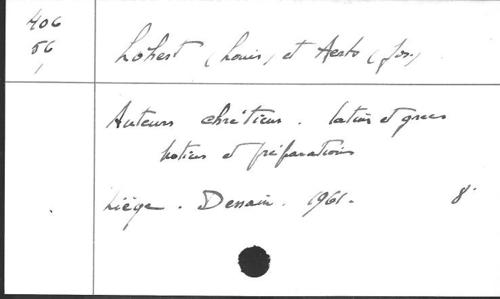 406
56
1
Lohest (Louis) et Aerts (Jos.)
Auteurs chrétiens. latins et grecs
notices et préparations
Liège. Dessain. 1961. 8°